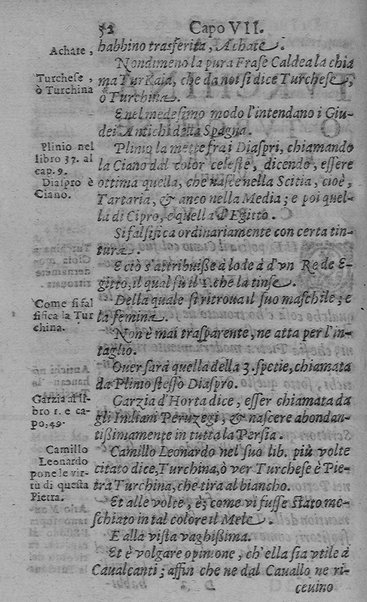 52 Capo VII.
babbino trasferita, Achate.
Nondimeno la pura Frase Caldea la chia
ma Turkaia, che da noi si dice Turchese,
ò Turchina.
E nel medesimo modo l'intendano i Giu-
dei Antichi della Spagna.
Plinio la mette fra i Diaspri, chiamando
la Ciano dal color celeste, dicendo, essere
ottima quella, che nasce nella Scitia, cioè,
Tartaria, & anco nella Media; e poi quel
la di Cipro, e quella d'Egitto.
Si falsifica ordinariamente con certa tin-
tura.
E ciò s'attribuisse à lode d'vn Re de E-
gitto, il qual fu il I. che la tinse.
Della quale si ritroua il suo maschile; e
la femina.
Non è mai trasparente, ne atta per l'in-
taglio.
Ouer sarà quella della 3. spetie, chiamata
da Plinio stesso Diaspro.
Garzia d'Horta dice, esser chiamata da
gli Indiani Peruzegi, & nascere abondan-
tissimamente in tutta la Persia.
Camillo Leonardo nel suo lib. più volte
citato dice, Turchina, ò ver Turchese è Pie-
tra Turchina, che tira al bianco.
Et alle volte, è; come vi fusse stato me-
schiato in tal colore il Mele.
E alla vista vaghissima.
Et è volgare opinione, ch'ella sia vtile à
Caualcanti; affin che ne dal Cauallo ne ri-
ceuino
Achate,
Turchese,
ò Turchina
Plinio nel
libro 37. al
cap. 9.
Diaspro è
Ciano.
Come si fal
sifica la Tur
china.
Garzia al li-
bro 1. e ca-
po, 49.
Camillo
Leonardo
pone le vir-
tù di questa
Pietra.